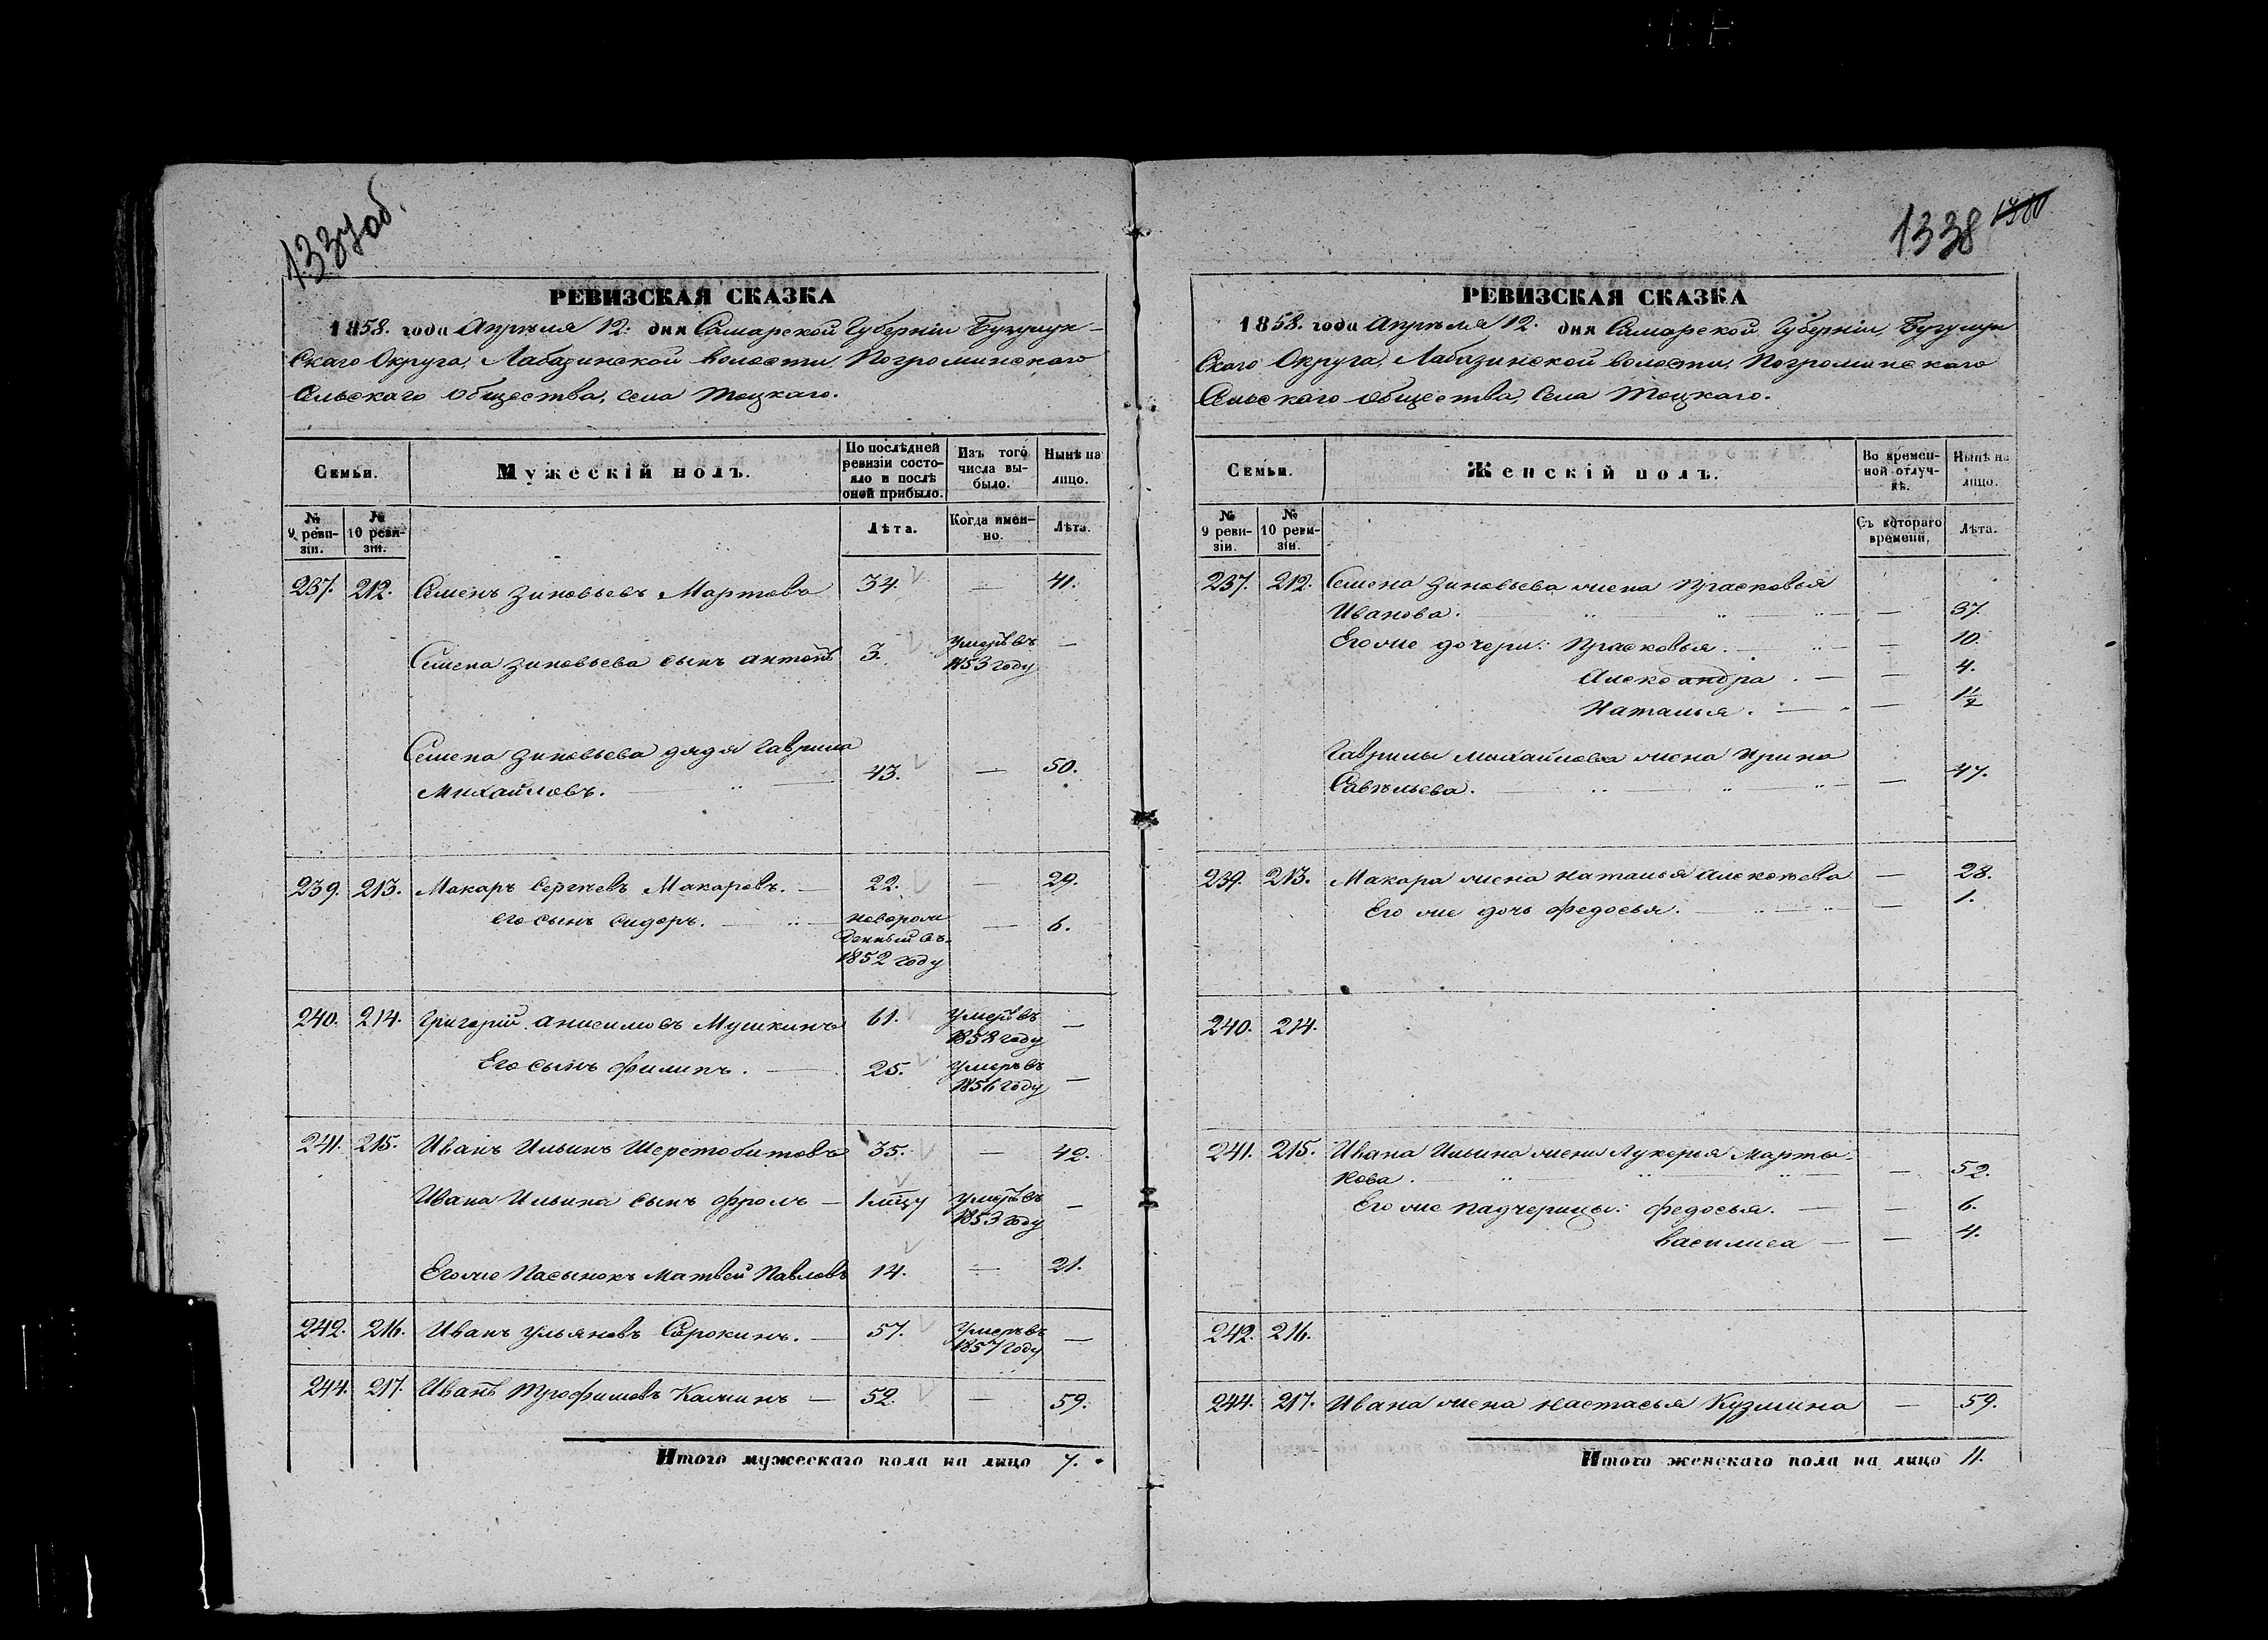 1337об.
РЕВИЗСКАЯ СКАЗКА
1858. года Апрѣля 12. дня Самарской Губерніи Бузулук-
Скаго Округа, Лабазинской волости, Погроминскаго
Сельскаго Общества, села Тоцкаго.
Семьи.
Мужескій полъ.
По послѣдней
ревизіи состо-
яло и послѣ
оной прибыло.
Изъ того
числа вы-
было.
Нынѣ на
лицо.
№
9 реви-
зіи.
№
10 реви-
зіи.
Лѣта.
Когда имен-
но.
Лѣта.
237. 212. Семенъ Зиновьевъ Мартовъ 34. — 41.
Семена Зиновьева сынъ Антонъ 3. Умеръ въ —
1853 году
Семена Зиновьева дядя Гаврила
Михайловъ. — 43. — 50.
239. 213. Макаръ Сергѣевъ Макаровъ. — 22. — 29.
его сынъ Сидоръ. — новорож — 6.
денный въ
1852 году
240. 214. Григорій Анисимовъ Мушкинъ 61. Умеръ въ —
1858 году
Его сынъ Филипъ. — 25. Умеръ въ —
1856 году
241. 215. Иванъ Ильинъ Шеретобитовъ 35. — 42.
Ивана Ильина сынъ Фролъ — 1 мѣцу Умеръ въ —
1853 году
Егоже Пасынокъ Матвей Павловъ 14. — 21.
242. 216. Иванъ Ульяновъ Сорокинъ. — 57. Умеръ въ —
1857 году
244. 217. Иванъ Трофимовъ Калининъ — 52. — 59.
Итого мужескаго пола на лицо 7.
1338
РЕВИЗСКАЯ СКАЗКА
1858. года Апрѣля 12. дня Самарской Губерніи, Бузулук
Скаго Округа, Лабазинской волости, Погроминскаго
Сельскаго Общества, Села Тоцкаго.
Семьи.
Женскій полъ.
Во времен-
ной отлуч-
кѣ.
Нынѣ на
лицо.
№
9 реви-
зіи.
№
10 реви-
зіи.
Съ котораго
времени.
Лѣта.
237. 212. Семена Зиновьева жена Прасковья
Иванова. — — 37.
Егоже дочери: Прасковья. — — 10.
Александра. — — 4.
Наталья. — — 1½
Гаврилы Михайлова жена Ирина
Савельева. — — 47.
239. 213. Макара жена Наталья Алексѣева — 28.
Его же дочь Федосья. — — 1.
240. 214.
241. 215. Ивана Ильина жена Лукерья Марты-
нова. — — 52.
Его же падчерицы: Федосья. — — 6.
Василиса — — 4.
242. 216.
244. 217. Ивана жена Настасья Кузмина — 59.
Итого женскаго пола на лицо 11.